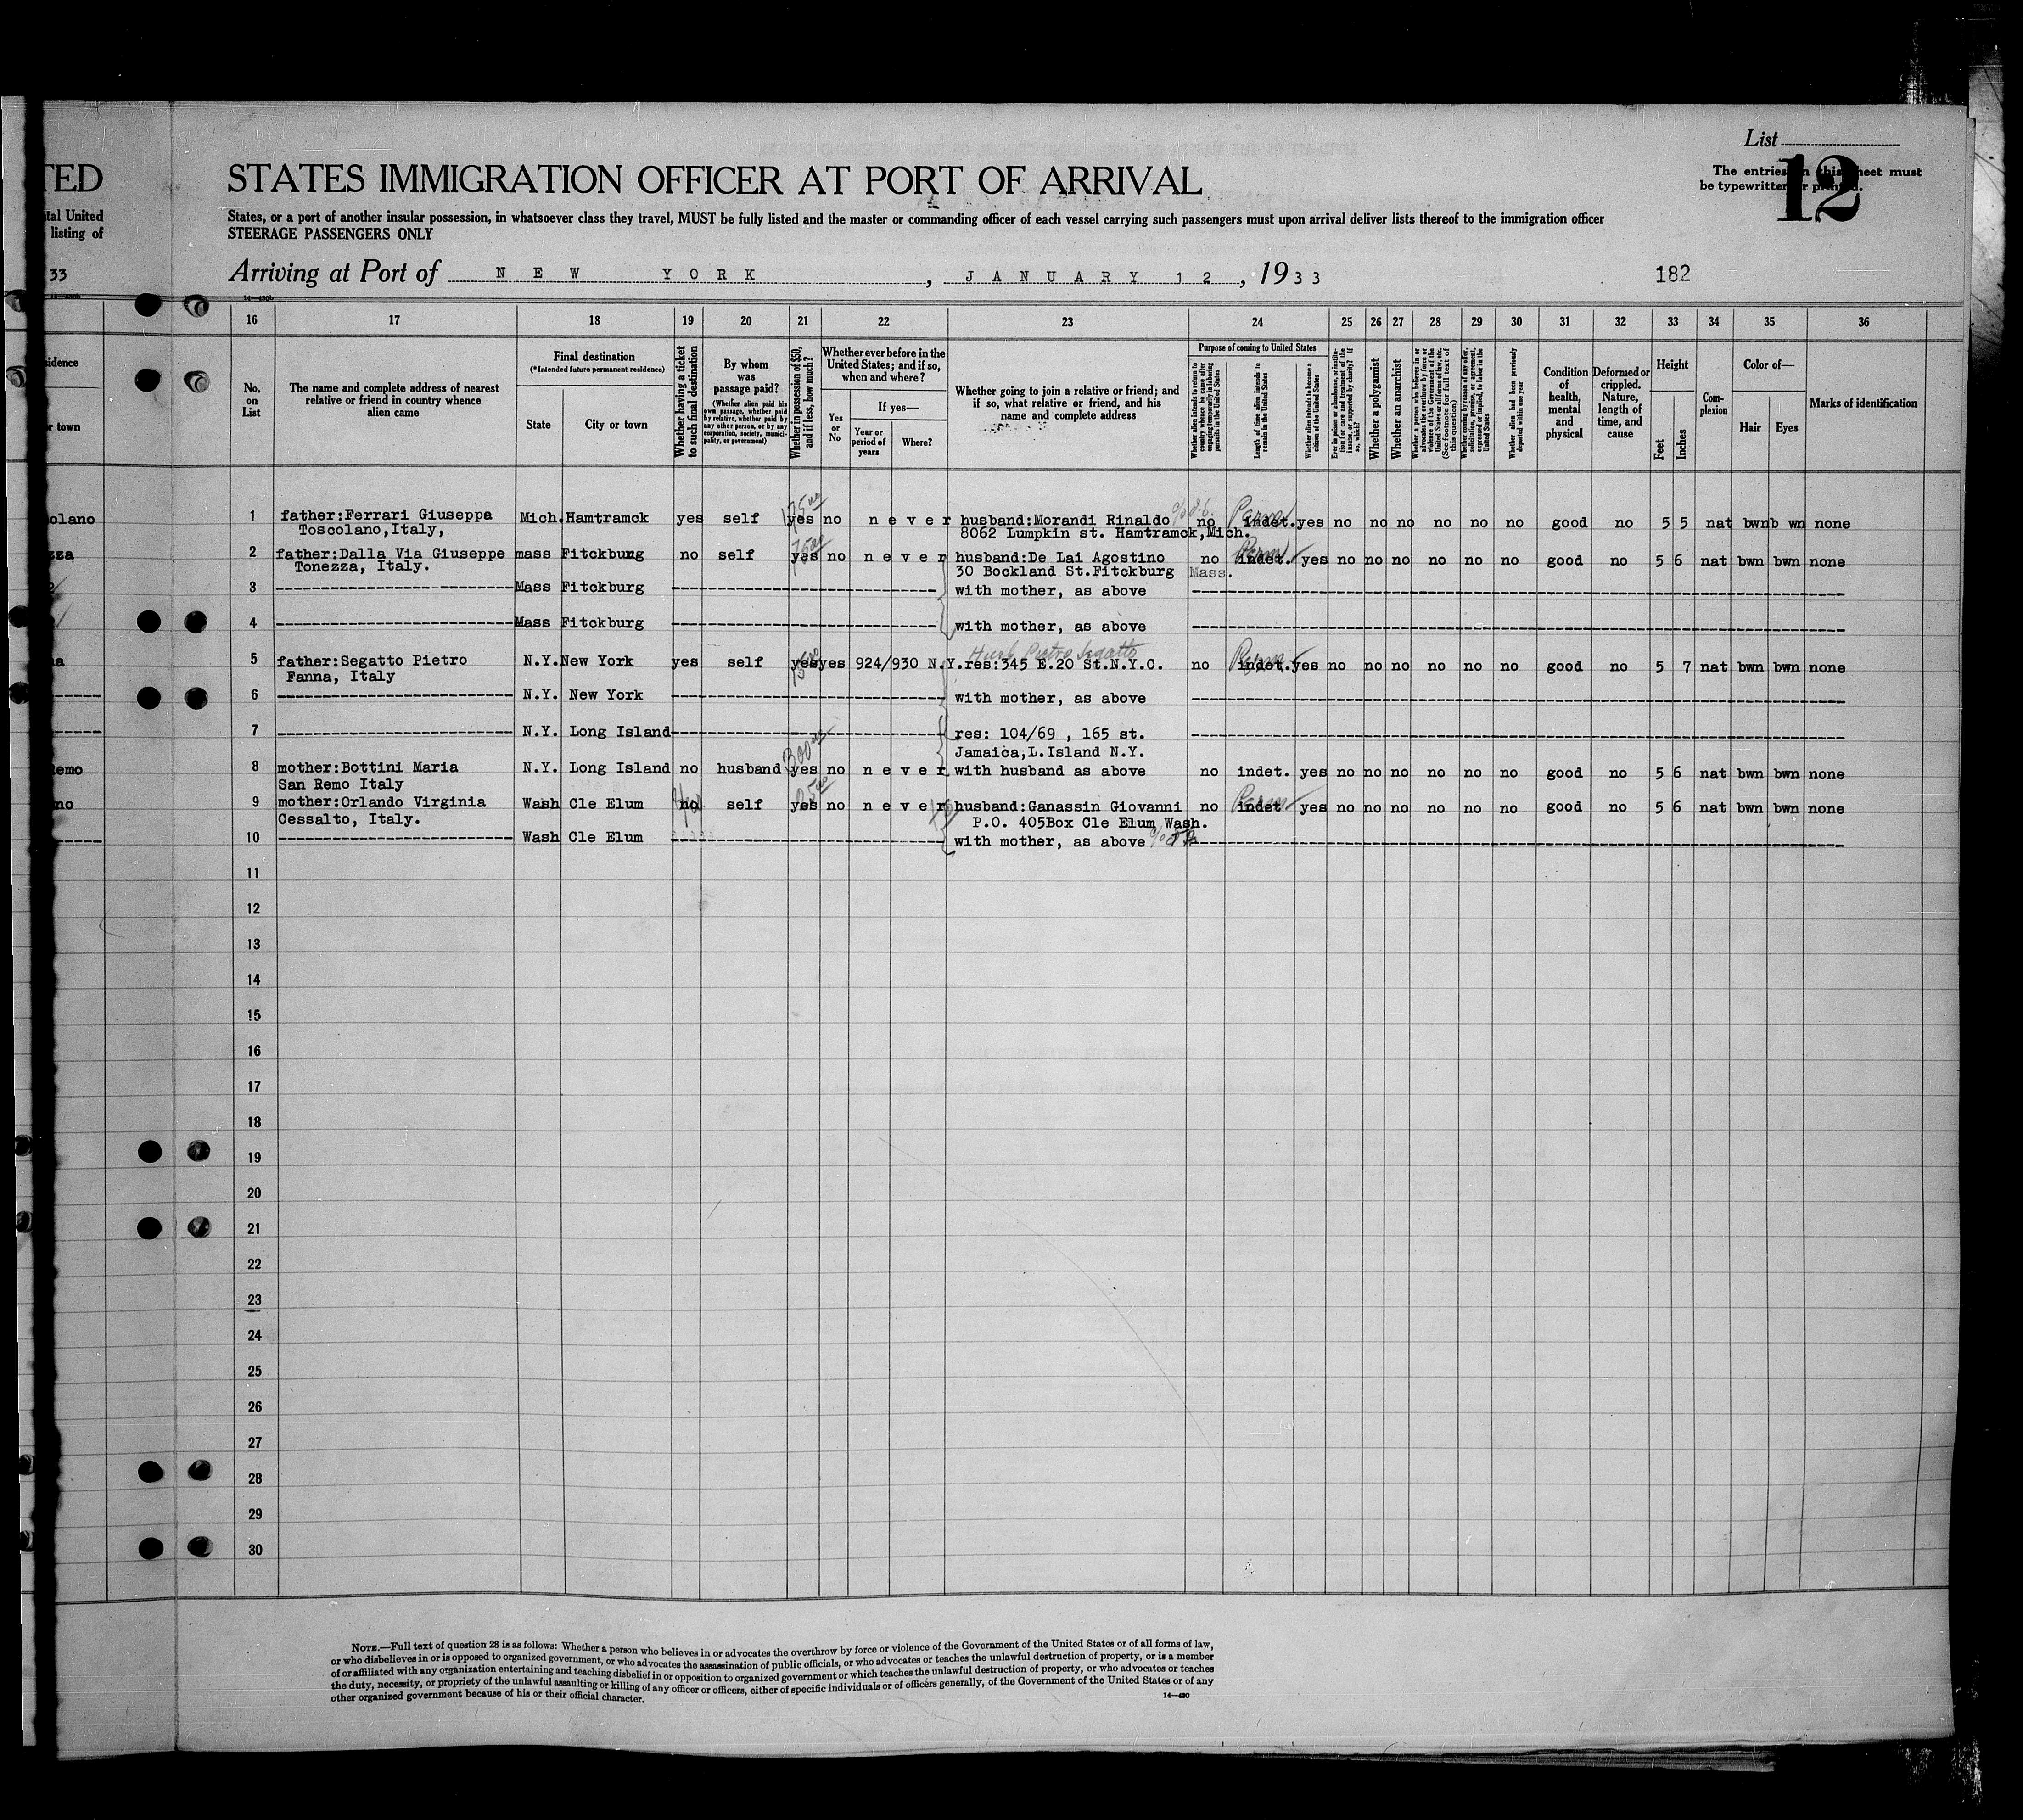 List
12
The entries in this sheet must
be typewritten or printed.
TED
STATES IMMIGRATION OFFICER AT PORT OF ARRIVAL
tal United
listing of
States, or a port of another insular possession, in whatsoever class they travel, MUST be fully listed and the master or commanding officer of each vessel carrying such passengers must upon arrival deliver lists thereof to the immigration officer
STEERAGE PASSENGERS ONLY
33
Arriving at Port of NEW YORK, JANUARY 12, 1933
182
16 17 18 19 20 21 22 23 24 25 26 27 28 29 30 31 32 33 34 35 36
idence
r town
No. on List
The name and complete address of nearest relative or friend in country whence alien came
Final destination
(*Intended future permanent residence)
State
City or town
Whether having a ticket to such final destination
By whom was passage paid?
(Whether alien paid his own passage, whether paid by relative, whether paid by any other person, or by any corporation, society, municipality, or government)
Whether in possession of $50, and if less, how much?
Whether ever before in the United States; and if so, when and where?
Yes or No
If yes—
Year or period of years
Where?
Whether going to join a relative or friend; and if so, what relative or friend, and his name and complete address
Purpose of coming to United States
Whether alien intends to return to country whence he came after engaging temporarily in laboring pursuits in the United States
Length of time alien intends to remain in the United States
Whether alien intends to become a citizen of the United States
Ever in prison or almshouse, or institution for care and treatment of the insane, or supported by charity? If so, which?
Whether a polygamist
Whether an anarchist
Whether a person who believes in or advocates the overthrow by force or violence of the Government of the United States or all forms of law, etc. (See footnote for full text of this question)
Whether coming by reason of any offer, solicitation, promise, or agreement, expressed or implied, to labor in the United States
Whether alien had been previously deported within one year
Condition of health, mental and physical
Deformed or crippled. Nature, length of time, and cause
Height
Feet
Inches
Complexion
Color of—
Hair
Eyes
Marks of identification
olano
1 father:Ferrari Giuseppa Mich. Hamtramck yes self yes no never husband:Morandi Rinaldo no indet. yes no no no no no no good no 5 5 nat bwn b wn none
Toscolano,Italy, 8062 Lumpkin st. Hamtramck,Mich.
zza
2 father:Dalla Via Giuseppe mass Fitckbung no self yes no never husband:De Lai Agostino no indet. yes no no no no no no good no 5 6 nat bwn bwn none
Tonezza, Italy. 30 Bockland St.Fitckburg Mass.
3 Mass Fitckburg with mother, as above
4 Mass Fitckburg with mother, as above
Husb Pietro Segatto
5 father:Segatto Pietro N.Y. New York yes self yes yes 924/930 N.Y. res:345 E.20 St.N.Y.C. no indet. yes no no no no no no good no 5 7 nat bwn bwn none
Fanna, Italy
6 N.Y. New York with mother, as above
7 N.Y. Long Island res: 104/69 , 165 st.
Jamaica,L.Island N.Y.
emo
300 00
8 mother:Bottini Maria N.Y. Long Island no husband yes no never with husband as above no indet. yes no no no no no no good no 5 6 nat bwn bwn none
San Remo Italy
no
9 mother:Orlando Virginia Wash Cle Elum no self yes no never husband:Ganassin Giovanni no indet yes no no no no no no good no 5 6 nat bwn bwn none
Cessalto, Italy. P.O. 405Box Cle Elum Wash.
10 Wash Cle Elum with mother, as above
11
12
13
14
15
16
17
18
19
20
21
22
23
24
25
26
27
28
29
30
NOTE.—Full text of question 28 is as follows: Whether a person who believes in or advocates the overthrow by force or violence of the Government of the United States or of all forms of law,
or who disbelieves in or is opposed to organized government, or who advocates the assassination of public officials, or who advocates or teaches the unlawful destruction of property, or is a member
of or affiliated with any organization entertaining and teaching disbelief in or opposition to organized government or which teaches the unlawful destruction of property, or who advocates or teaches
the duty, necessity, or propriety of the unlawful assaulting or killing of any officer or officers, either of specific individuals or of officers generally, of the Government of the United States or of any
other organized government because of his or their official character.
14—430